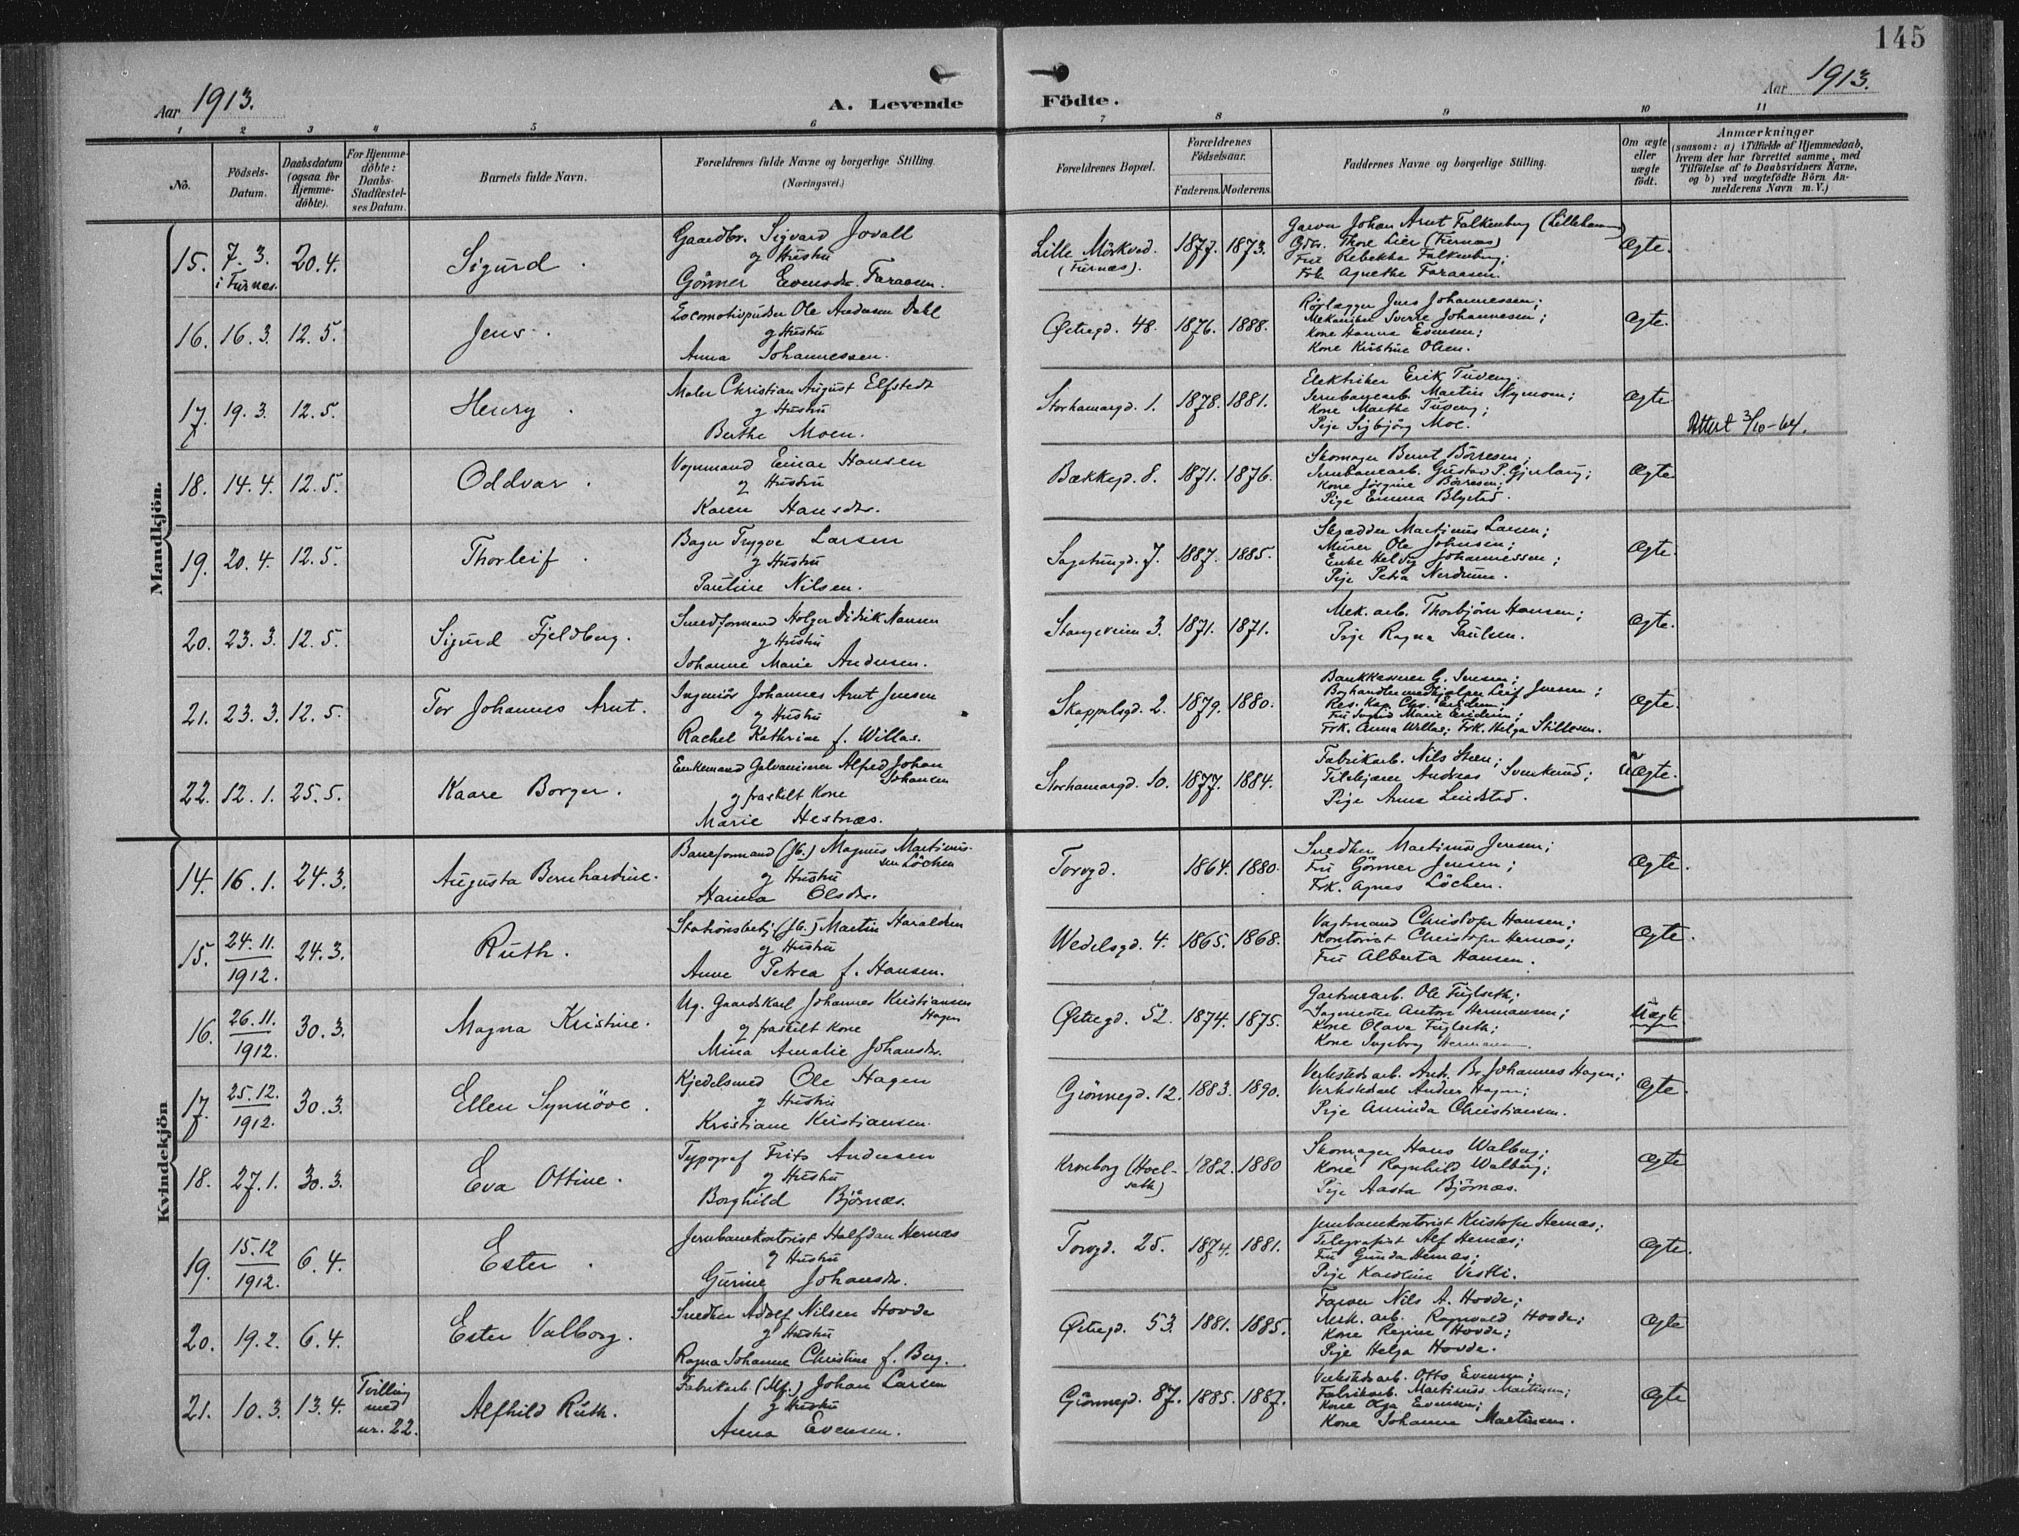 145
Aar 1913.
A. Levende
Födte.
Aar 1913.
1 2 3 4 5 6 7 8 9 10 11
No.
Födsels-Datum.
Daabsdatum (ogsaa for Hjemme-döbte).
For Hjemme-döbte: Daabs-Stadfæstel-ses Datum.
Barnets fulde Navn.
Forældrenes fulde Navne og borgerlige Stilling.
(Næringsvei.)
Forældrenes Bopæl.
Forældrenes Födselsaar.
Faderens. Moderens.
Faddernes Navne og borgerlige Stilling.
Om ægte eller uægte födt.
Anmærkninger
(saasom: a) i Tilfælde af Hjemmedaab,
hvem der har forrettet samme, med
Tilföielse af to Daabsvidners Navne,
og b) ved uægtefödte Börn An-
melderens Navn m. V.)
Mandkjön.
15. 7. 3. i Furnæs. 20. 4. Sigurd.
Gaardbr. Sigvard Jovall
og Hustru
Gönner Evensdr. Faraasen.
Lille Mörkved (Furnæs). 1877. 1873.
Garver Johan Arnt Falkenberg (Lillehammer)
Gdr. Thore Lier (Furnæs)
Fru Rebekka Falkenberg;
Frk. Agnethe Faraasen.
Ægte.
16. 16. 3. 12. 5. Jens.
Locomotivpudser Ole Andersen Dahl
og Hustru
Anna Johannessen.
Østregd. 48. 1876. 1888.
Rörlægger Jens Johannessen;
Mekaniker Sverre Johannessen;
Kone Hanna Evensen;
Kone Kristine Olsen.
Ægte.
17. 19. 3. 12. 5. Henry.
Maler Christian August Elfstedt
og Hustru
Berthe Moen.
Storhamargd. 1. 1878. 1881.
Elektriker Erik Tuveng.
Jernbanearb. Martin Nymoen;
Kone Marthe Tuveng;
Pige Sigbjörg Moe.
Ægte
Attest 3/10-64.
18. 14. 4. 12. 5. Oddvar.
Vognmand Einar Hansen
og Hustru
Karen Hansdr.
Bækkegd. 8. 1871. 1876.
Skomager Bernt Börresen;
Jernbanearb. Gustav P. Gjerlaug;
Kone Jörgine Börresen;
Pige Emma Blystad.
Ægte
19. 20. 4. 12. 5. Thorleif.
Bager Trygve Larsen
og Hustru
Pauline Nilsen.
Sagatungd. 7. 1887. 1885.
Skrædder Martinus Larsen;
Murer Ole Johnsen;
Enke Helvig Johannessen;
Pige Petra Nerdrum.
Ægte.
20. 23. 3. 12. 5. Sigurd Fjeldberg.
Smedformand Holger Didrik Hansen
og Hustru
Johanne Marie Andersen.
Stangeveien 3. 1871. 1871.
Mek. arb. Thorbjörn Hansen;
Pige Ragna Paulsen.
Ægte.
21. 23. 3. 12. 5. Tor Johannes Arnt.
Ingeniör Johannes Arnt Jensen
og Hustru
Rachel Kathrine f. Willas.
Skappelsgd. 2. 1879. 1880.
Bankkasserer G. Jensen;
Boghandlermedhjelper Leif Jensen;
Res. Kap. Chr. Eridsen;
Fru Sigrid Marie Eridsen;
Frk. Anna Willas; Frk. Helga Stillesen.
Ægte.
22. 12. 1. 25. 5. Kaare Borger.
Enkemand Galvaniserer Alfred Johan
Johansen
og fraskilt Kone
Marie Hestnæs.
Storhamargd. 10. 1877. 1884.
Fabrikarb. Nils Steen;
Tilskjærer Andreas Svenkerud;
Pige Anna Lindstad.
Uægte.
Kvindekjön
14. 16. 1. 24. 3. Augusta Bernhardine.
Baneformand (Jb.) Magnus Martinus-
sen Löchen
og Hustru
Hanna Olsdr.
Torvgd. 1864. 1880.
Snedker Martinus Jensen;
Fru Gönner Jensen;
Frk. Agnes Löchen.
Ægte.
15. 24. 11. 1912. 24. 3. Ruth.
Stationsbetj. (Jb.) Martin Haraldsen
og Hustru
Anne Petrea f. Hansen.
Wedelsgd. 4. 1865. 1868.
Vagtmand Christofer Hansen;
Kontorist Christofer Hernæs;
Fru Alberta Hansen.
Ægte.
16. 26. 11. 1912. 30. 3. Magna Kristine.
Ug. Gaardskarl Johannes Kristiansen
Hagen
og fraskilt Kone
Mina Amalie Johansdr.
Østregd. 52. 1874. 1875.
Gartnerarb. Ole Fuglseth;
Sagmester Anton Hermansen;
Kone Olava Fuglseth;
Kone Ingeborg Hermansen.
Uægte
17. 25. 12. 1912. 30. 3. Ellen Synnöve.
Kjedelsmed Ole Hagen
og Hustru
Kristiane Kristiansen.
Grönnegd. 12. 1883. 1890.
Verkstedsarb. Andr. Br. Johannes Hagen;
Verkstedsarb. Anders Hagen;
Pige Aminda Christiansen.
Ægte.
18. 27. 1. 30. 3. Eva Ottine.
Typograf Frits Andersen
og Hustru
Borghild Björnæs.
Kronborg (Hoel-
seth) 1882. 1880
Skomager Hans Walberg;
Kone Ragnhild Walberg;
Pige Aasta Björnæs.
Ægte
19. 15. 12 1912. 6. 4. Ester.
Jernbanekontorist Halfdan Hernæs
og Hustru
Gurine Johansdr.
Torvgd. 25. 1874. 1881.
Jernbanekontorist Kristofer Hernæs;
Telegrafist Alf Hernæs;
Fru Gunda Hernæs;
Pige Karoline Vestli.
Ægte.
20. 19. 2. 6. 4. Ester Valborg.
Snedker Adolf Nilsen Hovde
og Hustru
Ragna Johanne Christine f. Berg.
Østregd. 53. 1881. 1885.
Farver Nils A. Hovde;
Mek. arb. Ragnvald Hovde;
Kone Regine Hovde;
Pige Helga Hovde.
Ægte
21. 10. 3. 13. 4. Tvilling med nr. 22. Alfhild Ruth.
Fabrikarb. (Mf.) Johan Larsen
og Hustru
Anna Evensen.
Grönnegd. 87. 1885. 1887.
Verkstedsarb. Otto Evensen;
Fabrikarb. Martinus Martinsen;
Kone Olga Evensen;
Kone Johanne Martinsen.
Ægte